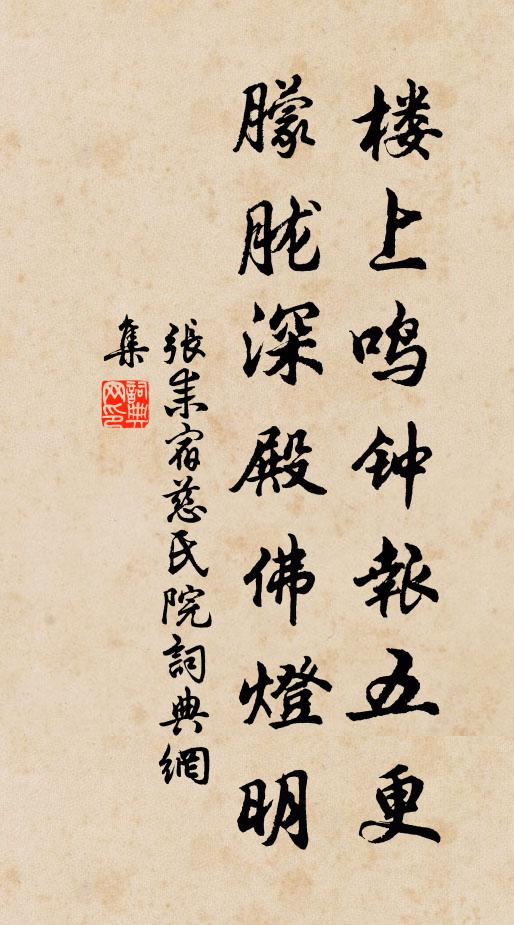 楼上鸣钟報五更
朦胧深殿佛燈明
張耒宿慈氏院詞典網
集
詞典
网印